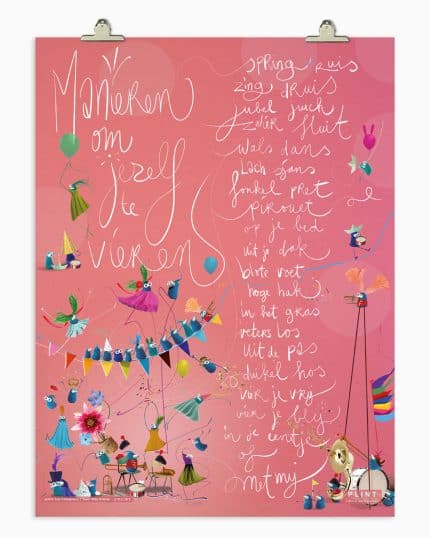 Manieren
om
jezelf
te
vieren
spring ruis
zing druis
jubel juich
zwier fluit
wals dans
Lach sjans
fonkel pret
pirouet
op je bed
uit je dak
blote voet
hoge hak
in het gras
veters los
Uit de pas
duikel hos
vier je vrij
vier je blij
in de eentje
of
met mij
PLINT